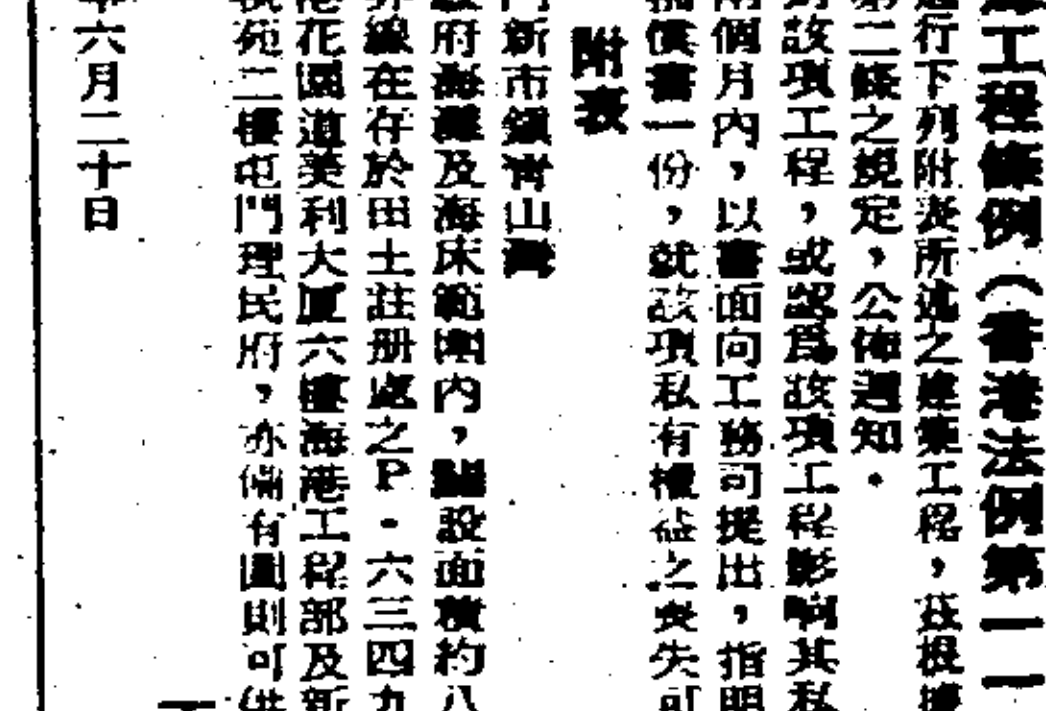 工程條例（香港法例第一一
進行下列附表所述之建築工程，茲根據
第二條之規定，公佈週知。
該項工程，或認爲該項工程影響其私
兩個月內，以書面向工務司提出，指明
償書一份，就該項私有權益之喪失可
附表
門新市鎮青山灣
府海灘及海床範圍內，闢設面積約八
界線在存於田土註册處之P．六三四九
港花園道美利大厦六樓海港工程部及新
苑二樓屯門理民府，亦備有圖則可供
年六月二十日